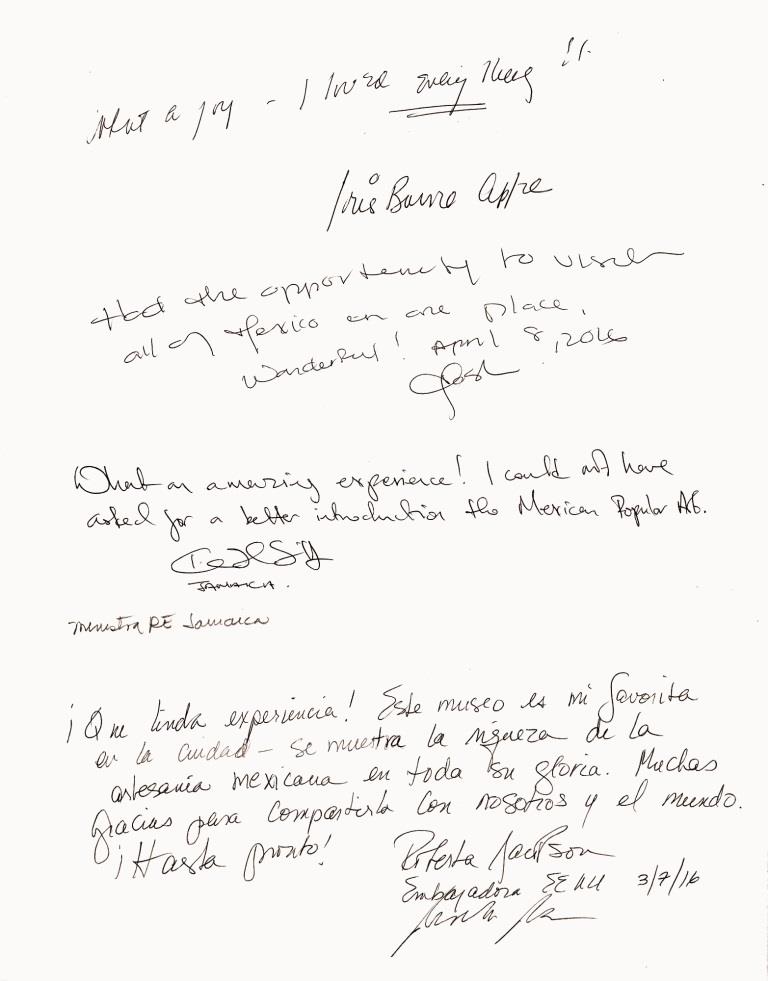 What a joy - I loved everything !!
Iris Barrel Apfel
Had the opportunity to visit
all of Mexico en one place,
Wonderful! April 8, 2016
What an amazing experience! I could not have
asked for a better introduction the Mexican Popular Art.
JAMAICA.
Ministra RE Jamaica
¡Que linda experiencia! Este museo es mi favorita
en la ciudad - se muestra la riqueza de la
artesanía mexicana en toda su gloria. Muchas
gracias para compartirla con nosotros y el mundo.
¡Hasta pronto!
Roberta Jacobson
Embajadora EEUU 3/7/16